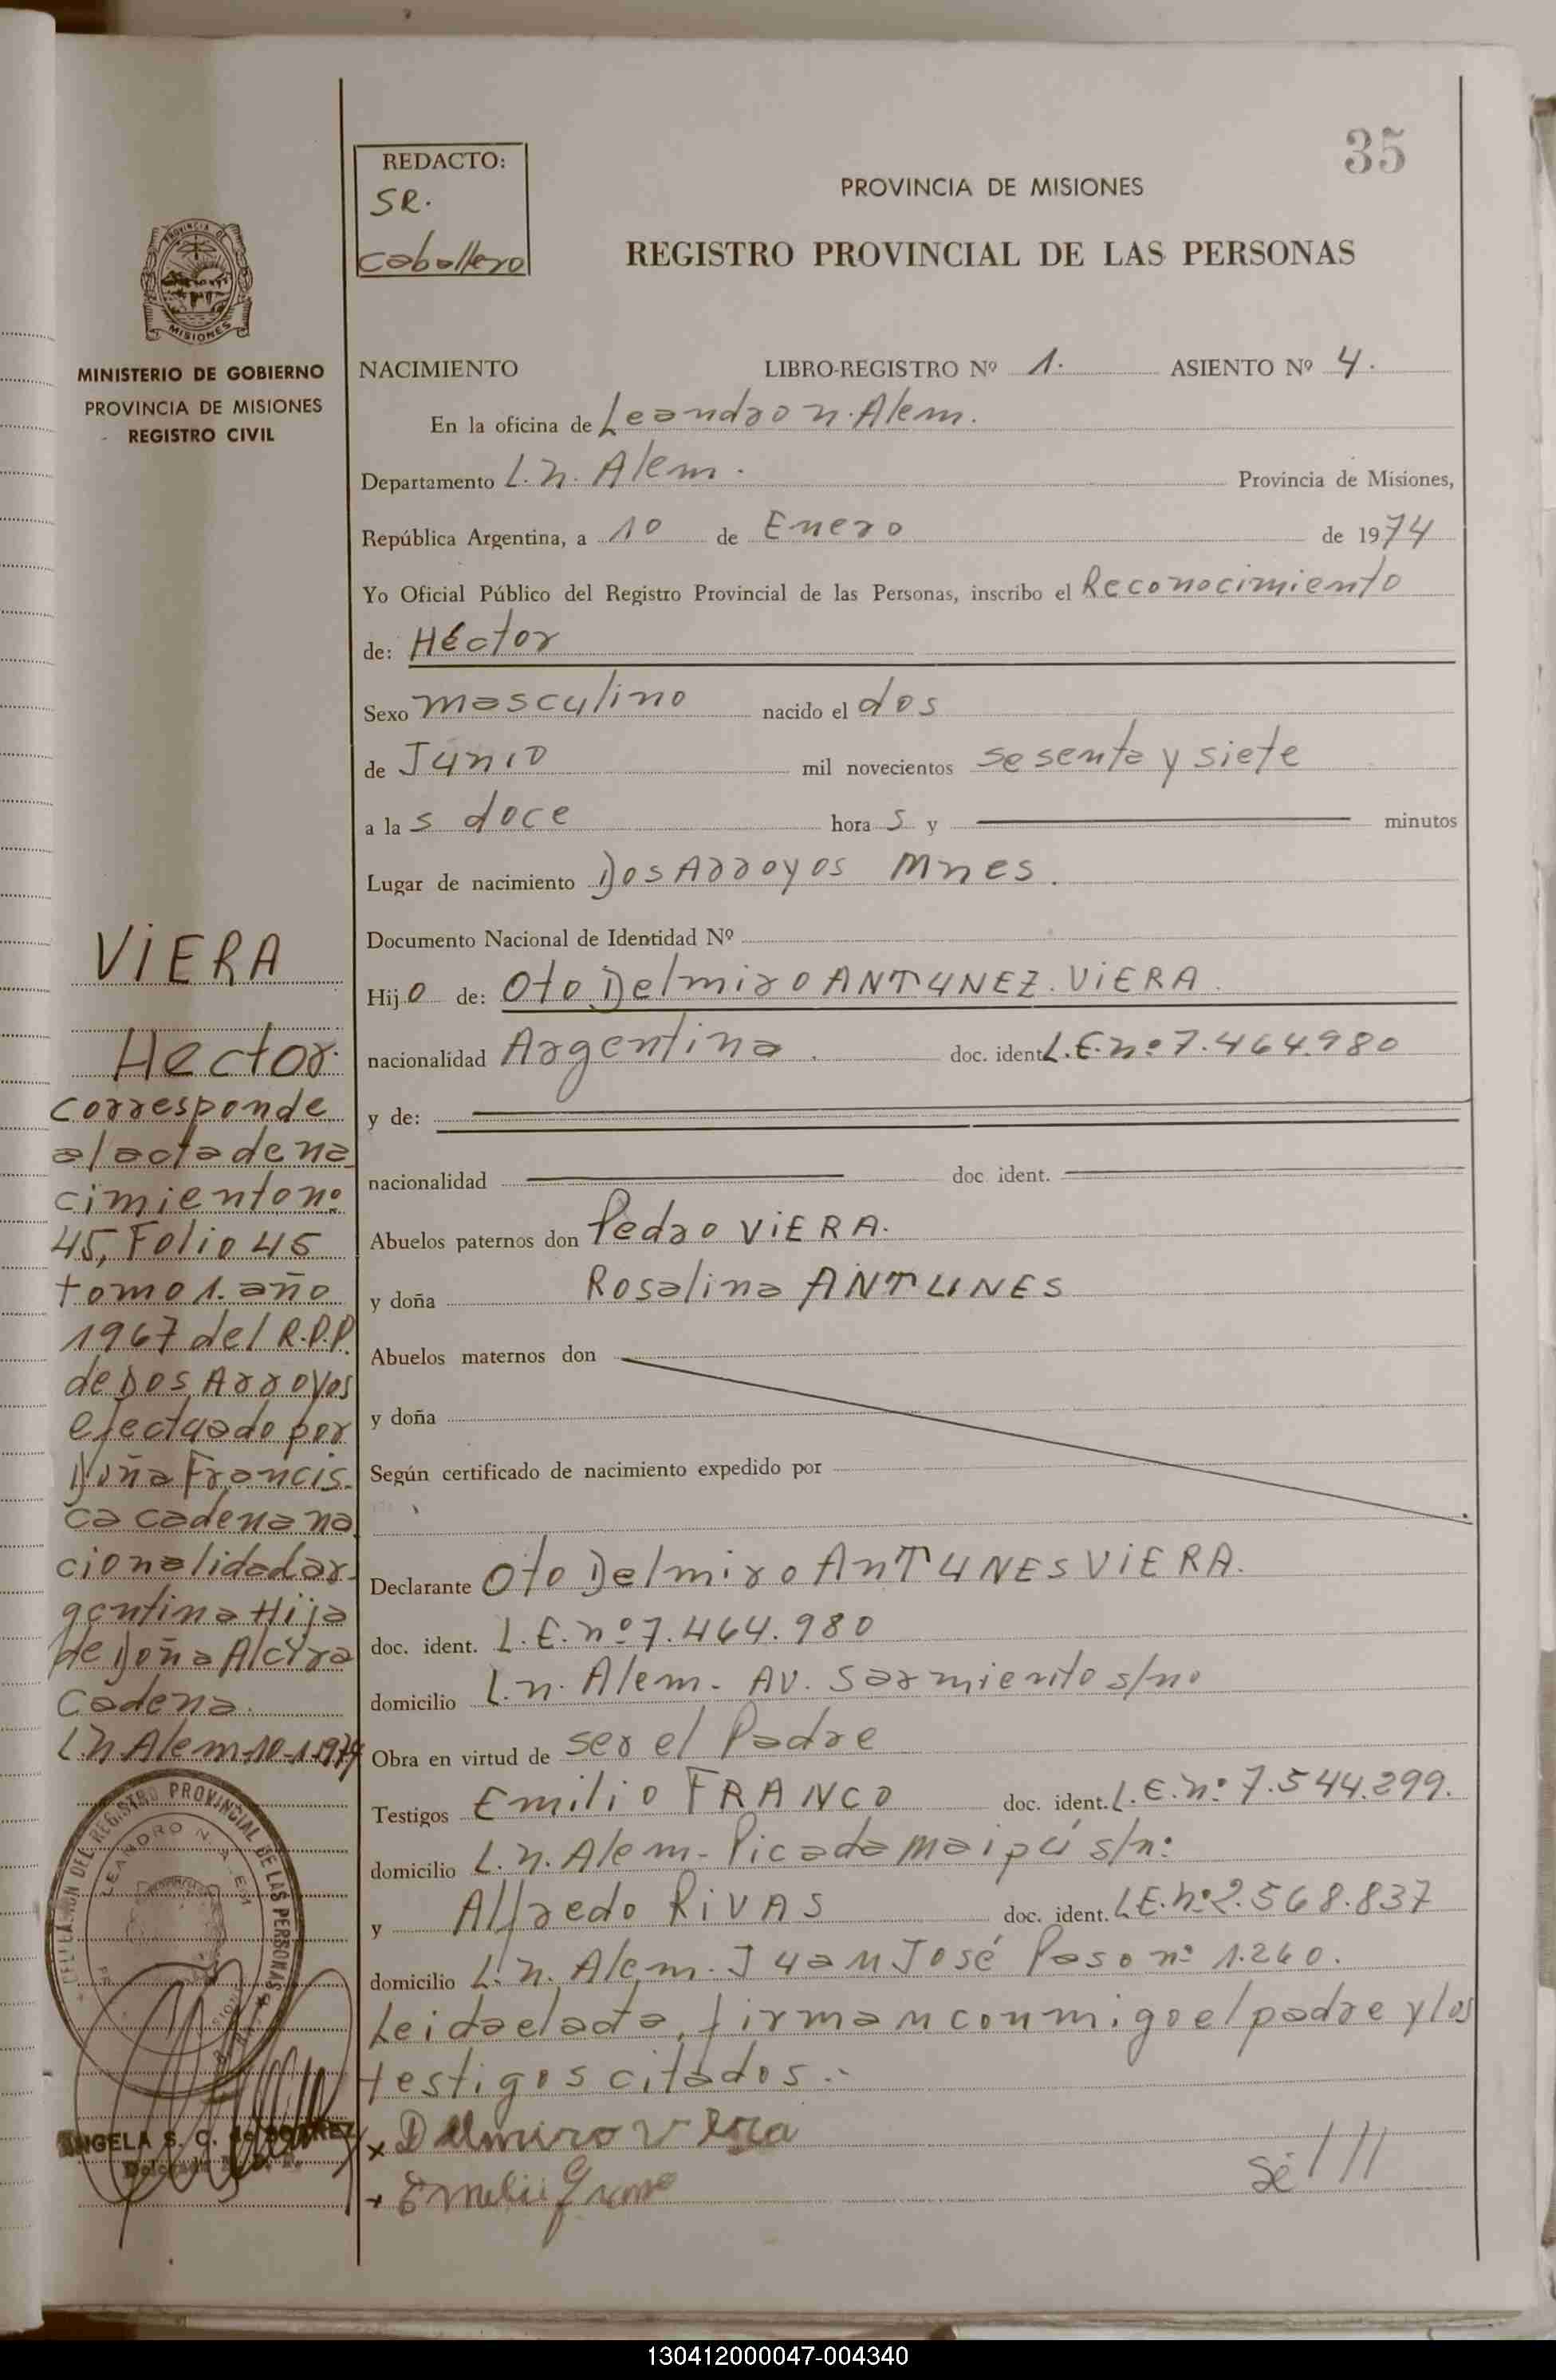 35
REDACTO:
SR.
Caballero
PROVINCIA DE MISIONES
REGISTRO PROVINCIAL DE LAS PERSONAS
PROVINCIA DE
MISIONES
MINISTERIO DE GOBIERNO
PROVINCIA DE MISIONES
REGISTRO CIVIL
NACIMIENTO LIBRO-REGISTRO Nº 1. ASIENTO Nº 4.
En la oficina de Leandro N. Alem.
Departamento L.N. Alem. Provincia de Misiones,
República Argentina, a 10 de Enero de 1974
Yo Oficial Público del Registro Provincial de las Personas, inscribo el Reconocimiento
de: Héctor
Sexo masculino nacido el dos
de Junio mil novecientos sesenta y siete
a la s doce hora s y minutos
Lugar de nacimiento Dos Arroyos Mnes.
Documento Nacional de Identidad Nº
Hijo de: Oto Delmiro ANTUNEZ. ViERA.
nacionalidad Argentina. doc. ident. L.E.nº 7.464.980
y de:
nacionalidad doc. ident.
Abuelos paternos don Pedro ViERA.
y doña Rosalina ANTUNES
Abuelos maternos don
y doña
Según certificado de nacimiento expedido por
Declarante Oto Delmiro AnTUNES ViERA.
doc. ident. L.E.nº 7.464.980
domicilio L.n. Alem. AV. Sarmiento s/nº
Obra en virtud de ser el Padre
Testigos Emilio FRANCO doc. ident. L.E.nº 7.544.299.
domicilio L.n. Alem- Picada Maipú s/nº
y Alfredo RiVAS doc. ident. L.E.nº 2.568.837
domicilio L.n. Alem. Juan José Paso nº 1.260.
Leida el acta, firman conmigo el padre y los
testigos citados.-
x Delmiro Viera
+ Emilio Franco
ViERA
Hector.
Corresponde
al acta de na
cimiento nº
45, Folio 45
tomo 1. año
1967 del R.P.P.
de Dos Arroyos
efectuado por
Doña Francis-
ca Cadena na
cionalidad ar-
gentina Hija
de Doña Alcyra
Cadena.
L.N Alem-10-1-1974
DEL REGISTRO PROVINCIAL DE LAS PERSONAS
LEANDRO N. ALEM
ANGELA S. C. de
130412000047-004340